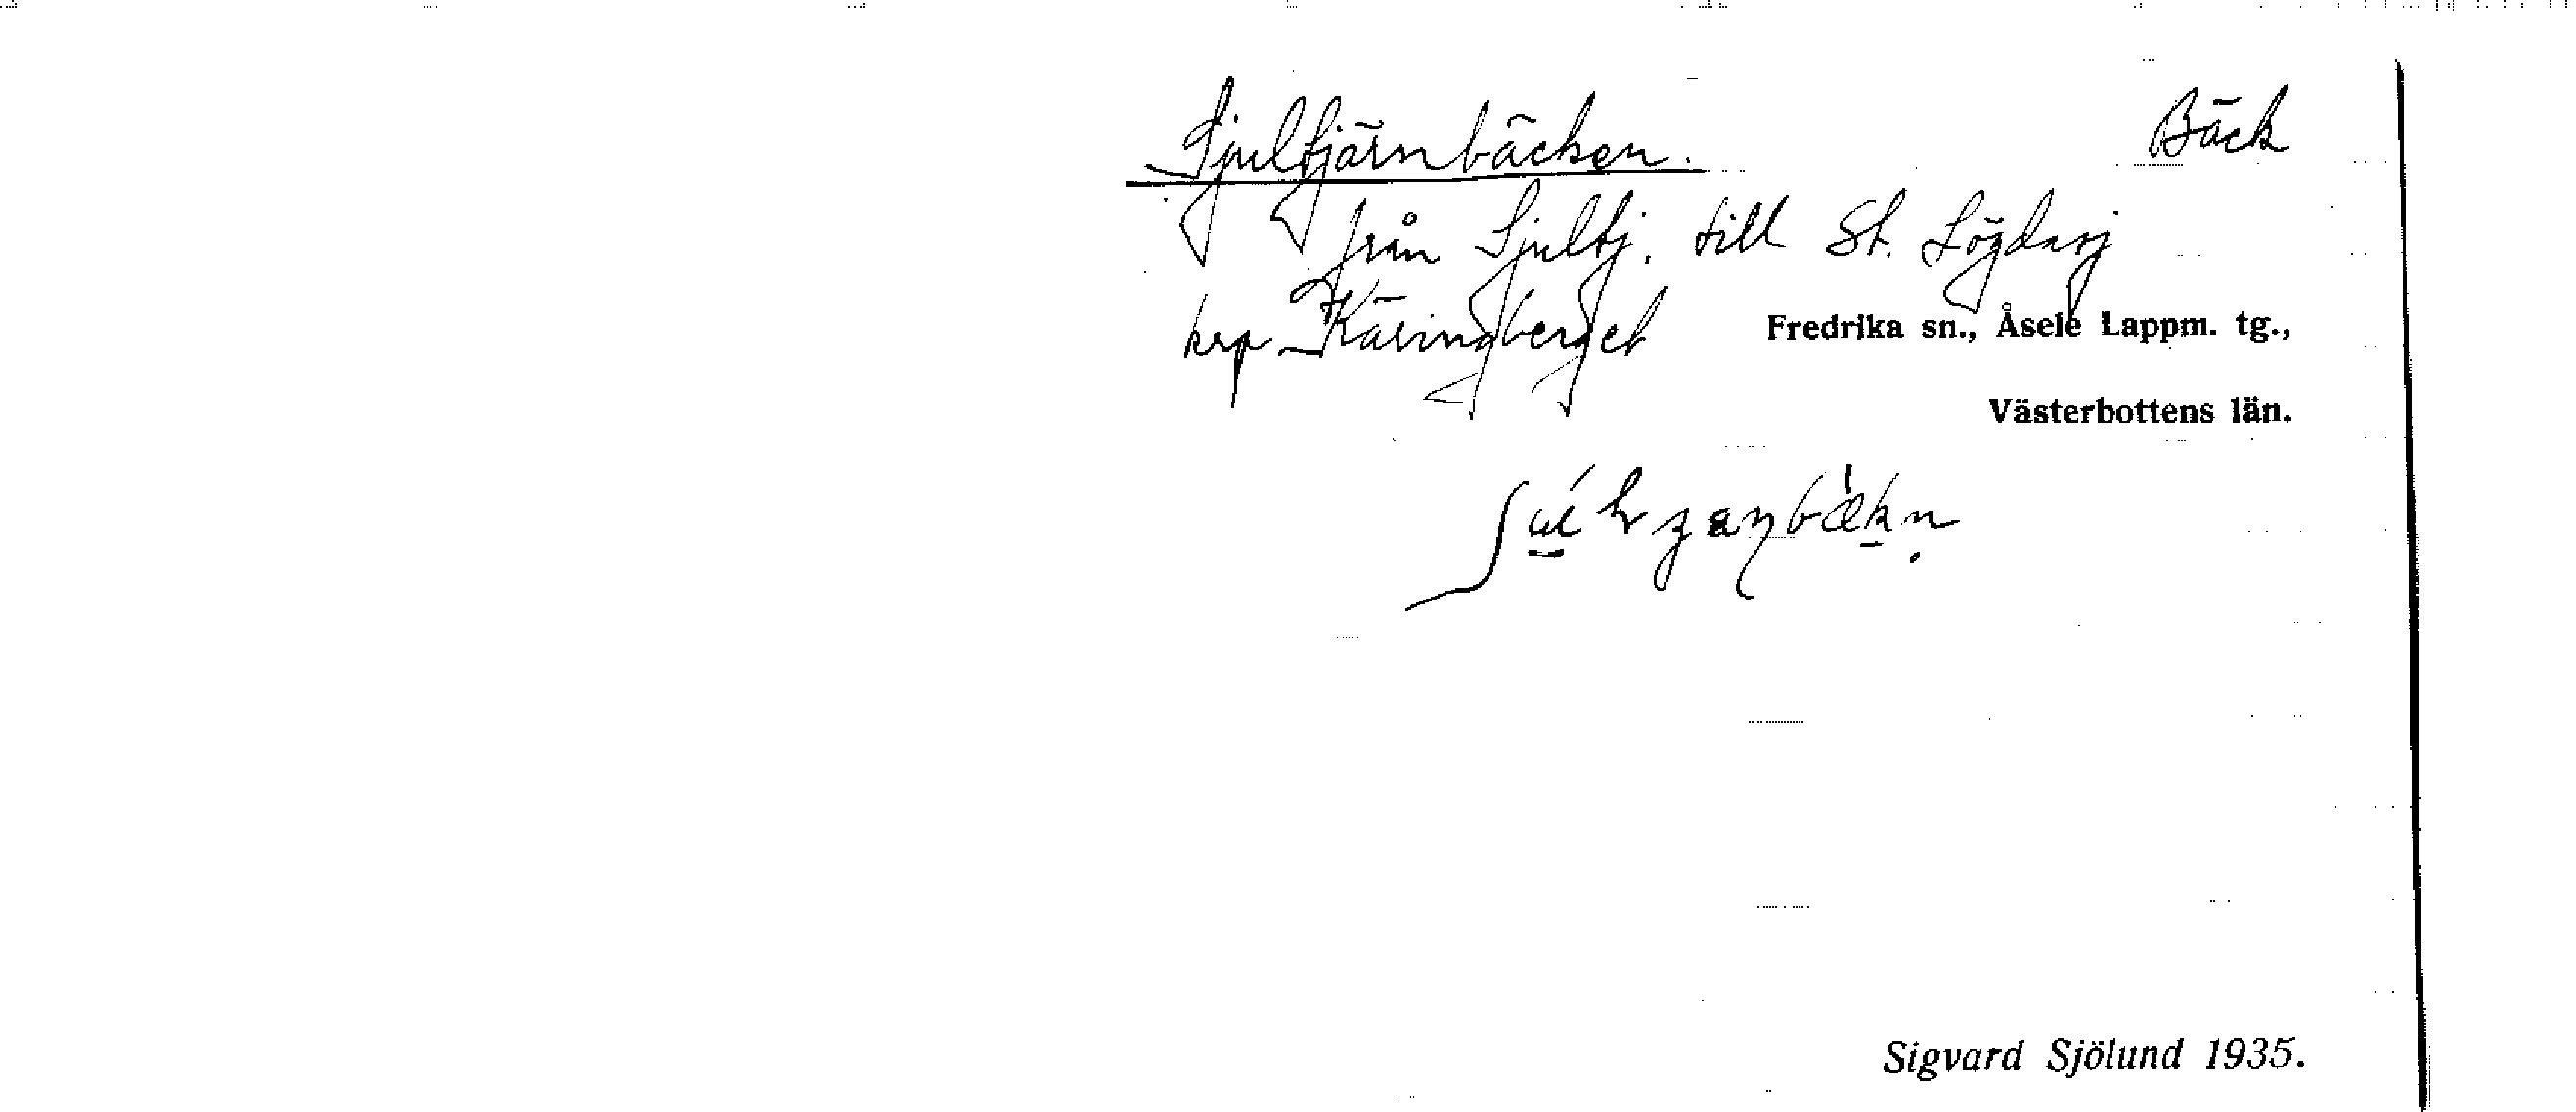 Sjultjärnbäcken. Bäck
från Sjultj. till St. Lögdasj
krp Käringberget Fredrika sn., Åsele Lappm. tg.,
Västerbottens län.
Sigvard Sjölund 1935.